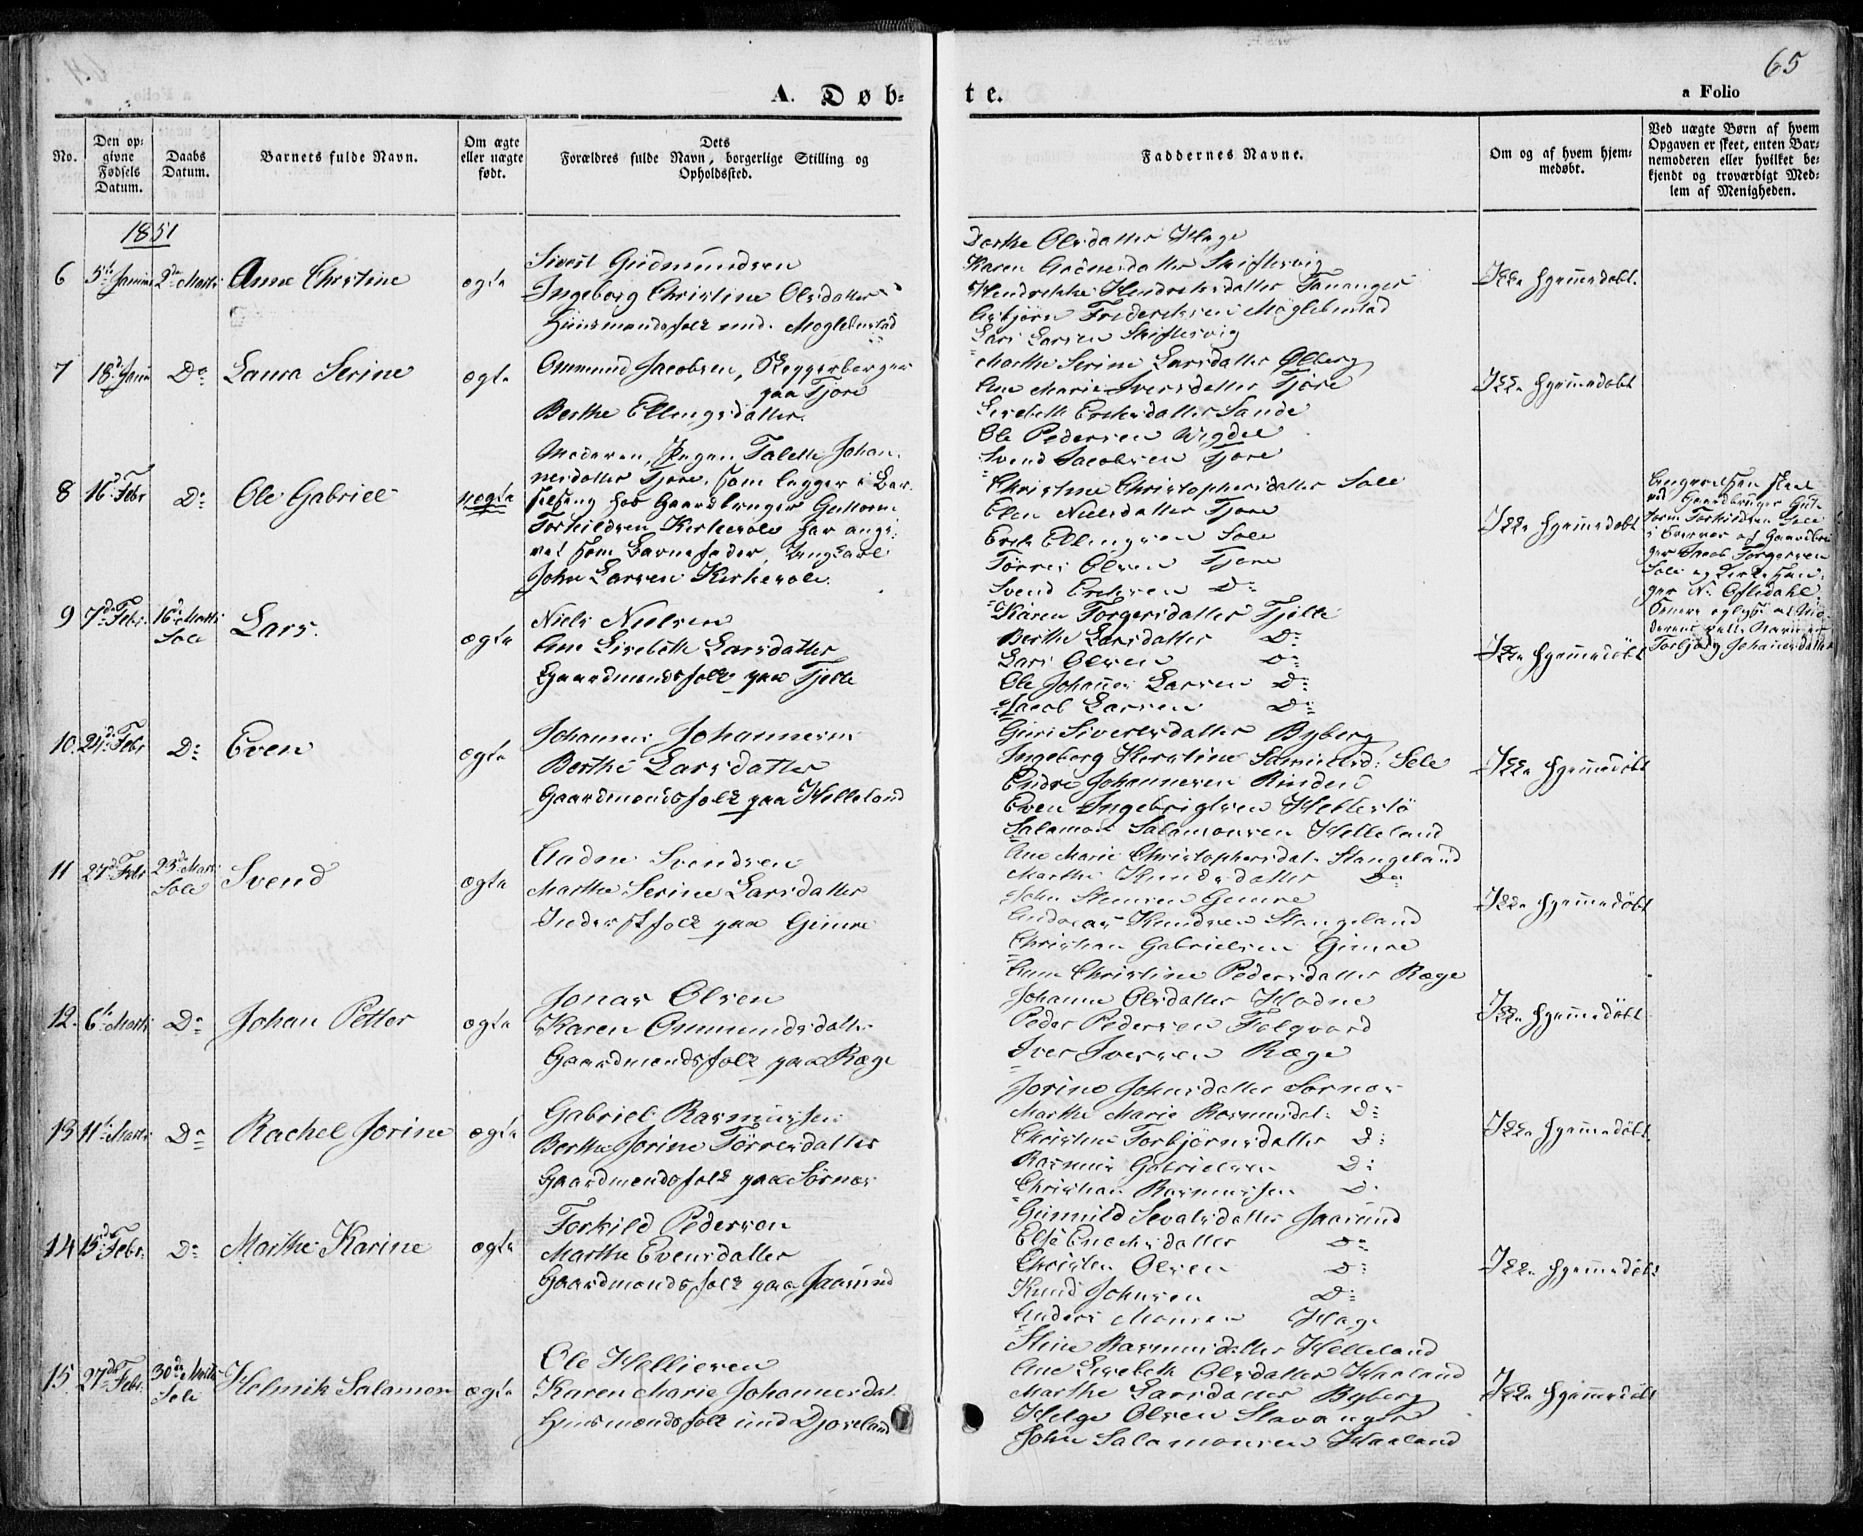 65
A. Døb-
te.
a Folio
No.
Den op-
givne
Fødsels
Datum.
Daabs
Datum.
Barnets fulde Navn.
Om ægte
eller uægte
født.
Dets
Forældres fulde Navn, borgerlige Stilling og
Opholdssted.
Faddernes Navne.
Om og af hvem hjem-
medøbt.
Ved uægte Børn af hvem
Opgaven er skeet, enten Bar-
nemoderen eller hvilket be-
kjendt og troværdigt Med-
lem af Menigheden.
1851
6 5te Januar 2den Marts Anne Christine ægte
Sivert Gudmundsen
Ingeborg Christine Olsdatter
Huusmandsfolk und. Møglebustad
Dorthe Olsdatter Hage
Karen Aadnesdatter Skiftesvig
Hendrikke Hendriksdatter Tananger
Asbjørn Frederiksen Møglebustad
Lars Larsen Skiftesvig
Ikke hjemmedøbt.
7 18de Janu Do Laura Serine ægte
Ommund Jacobsen,
paa Tjore
Berthe Ellingsdatter.
Marthe Serine Larsdatter Ølberg
Ane Marie Iversdatter Tjore
Lisebeth Eriksdatter Sande
Ole Pedersen Wigdel
Svend Jacobsen Tjore
Ikke hjemmedøbt
8 16de Febr Do Ole Gabriel uægte
Moderen, Pigen Talette Johan-
nesdatter Tjore, som ligger i Bar-
selseng hos Gaardbruger Guttorm
Torkildsen Kirkesole har angi-
vet som Barnefader, Ungkarl
John Larsen Kirkesole.
Christine Christophersdatter Sole
Elen Nielsdatter Tjore
Erik Ellingsen Sole
Tørres Olsen Tjore
Svend Eriksen Do
Ikke hjemmedøbt
Angivelsen skeet
ved Gaardbruger Gut-
torm Torkildsen Sole
i Overvær af Gaardbru-
ger Jacob Torgersen
Sole og Kirkesan-
ger N. Asledahl.
Torbjørg Johannesdatter
9 7de Febr. 16de Marts Sole Lars. ægte
Niels Nielsen
Ane Lisebeth Larsdatter
Gaardmandsfolk paa Tjelte
Karen Torgersdatter Tjelte
Berthe Larsdatter Do
Lars Olsen Do
Ole Johannes Larsen Do
Jacob Larsen Do
Ikke hjemmedøbt
10. 24de Febr Do Even ægte
Johannes Johannesen
Berthe Larsdatter
Gaardmandsfolk paa Helleland
Guri Siversdatter Byberg
Ingeborg Kirstine Samuelsd: Sele
Endre Johannesen Rinden
Even Ingebrigtsen Hellestø
Salamon Salamonsen Helleland
Ikke hjemmedøbt
11 27de Febr 23de Marts Sole Svend ægte
Aadne Svendsen
Marthe Serine Larsdatter
Inderstfolk paa Gimre
Ane Marie Christophersdat. Stangeland
Marthe Knudsdatter Do
John Steensen Gimre
Andreas Knudsen Stangeland
Christian Gabrielsen Gimre
Ikke hjemmedøbt
12. 6te Marts Do Johan Petter ægte
Jonas Olsen
Karen Ommundsdatter
Gaardmandsfolk paa Ræge
Anne Christine Pedersdatter Ræge
Johanne Olsdatter Hodne
Peder Pedersen Folqvord
Iver Iversen Ræge
Ikke hjemmedøbt
13 11te Marts Do Rachel Jorine ægte
Gabriel Rasmussen
Berthe Jorine Tørresdatter
Gaardmandsfolk paa Sørnæs
Jorine Johnsdatter Sørnæs
Marthe Marie Rasmusdat. Do
Christine Torbjørnsdatter Do
Rasmus Gabrielsen Do
Christian Rasmussen Do
Ikke hjemmedøbt
14 15de Febr. Do Marthe Karine ægte
Torkild Pedersen
Marthe Evensdatter
Gaardmandsfolk paa Jaasund
Gunnild Sevalsdatter Jaasund
Else Enochsdatter Do
Christen Olsen Do
Knud Johnsen Do
Anders Monsen Hage
Ikke hjemmedøbt
15 27de Febr. 30de Marts Sole Helmik Salamon ægte
Ole Helliesen
Karen Marie Johannesdat.
Huusmandsfolk und Djoseland
Stine Rasmusdatter Helleland
Ane Lisebeth Olsdatter Haaland
Marthe Larsdatter Byberg
Helge Olsen Stavanger
John Salamonsen Haaland
Ikke hjemmedøbt